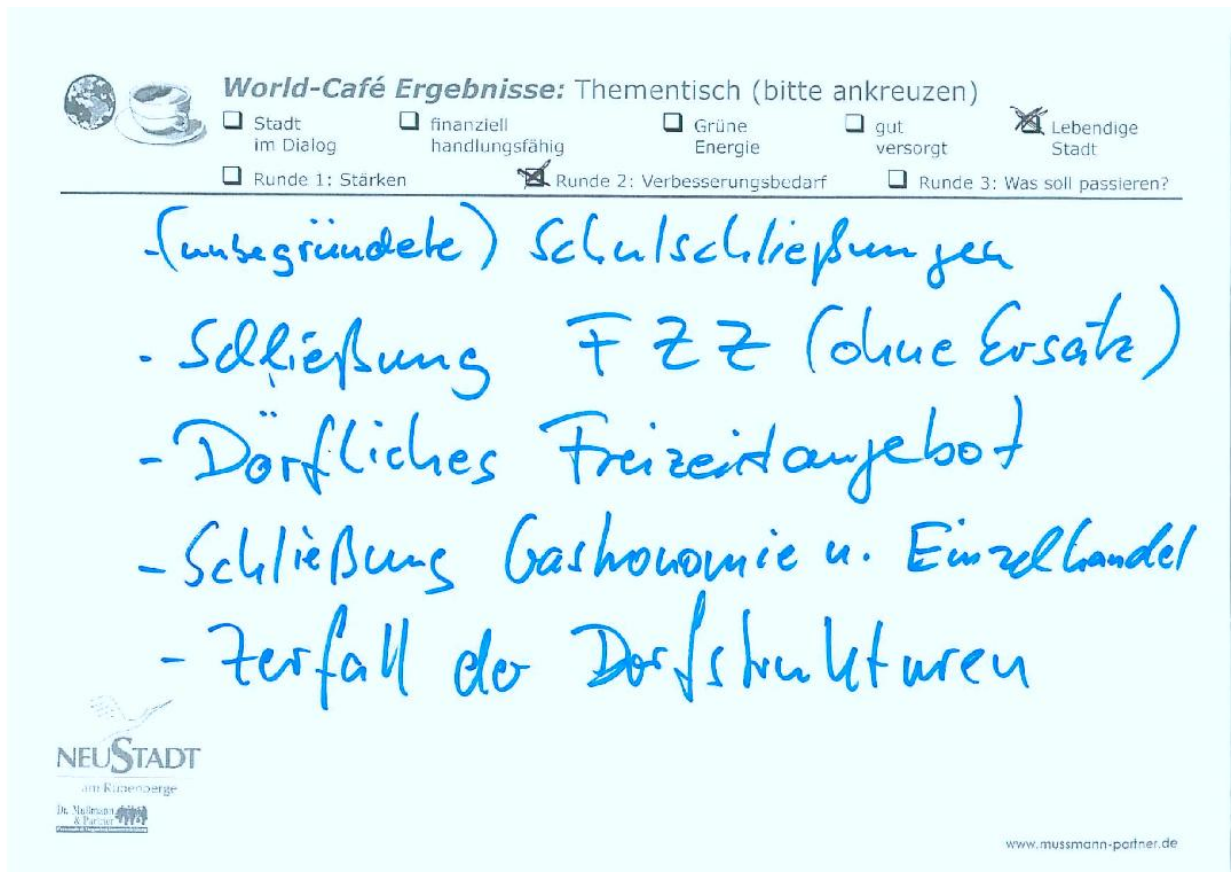 World-Café Ergebnisse: Thementisch (bitte ankreuzen)
☐ Stadt im Dialog ☐ finanziell handlungsfähig ☐ Grüne Energie ☐ gut versorgt ☒ Lebendige Stadt
☐ Runde 1: Stärken ☒ Runde 2: Verbesserungsbedarf ☐ Runde 3: Was soll passieren?
-(unbegründete) Schulschließungen
- Schließung FZZ (ohne Ersatz)
- Dörfliches Freizeitangebot
- Schließung Gastronomie u. Einzelhandel
- Zerfall der Dorfstrukturen
NEUSTADT
am Rübenberge
Dr. Mußmann
& Partner
www.mussmann-partner.de